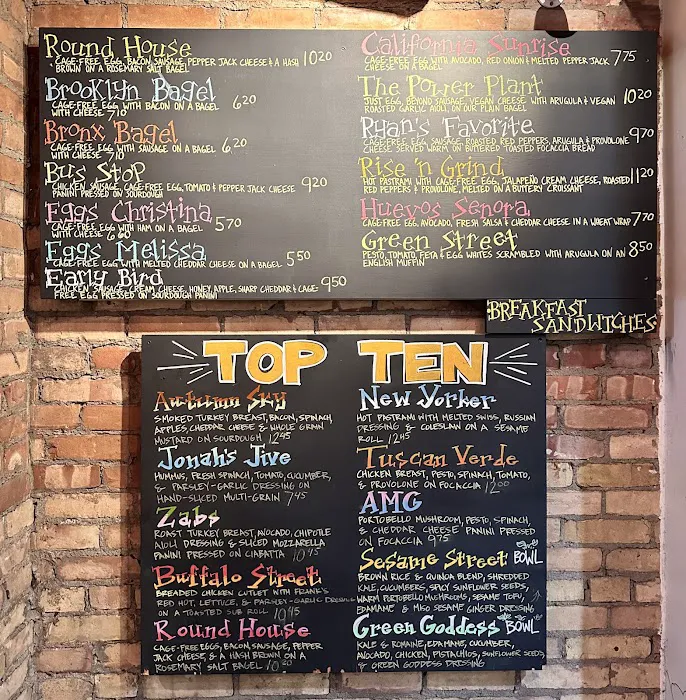 Round House
CAGE-FREE EGG, BACON, SAUSAGE, PEPPER JACK CHEESE & A HASH 10 20
BROWN ON A ROSEMARY SALT BAGEL
Brooklyn Bagel
CAGE-FREE EGG WITH BACON ON A BAGEL 6 20
WITH CHEESE 7 10
Bronx Bagel
CAGE-FREE EGG WITH SAUSAGE ON A BAGEL 6.20
WITH CHEESE 7 10
Bus Stop
CHICKEN SAUSAGE, CAGE-FREE EGG, TOMATO & PEPPER JACK CHEESE 9 20
PANINI PRESSED ON SOURDOUGH
Eggs Christina
CAGE-FREE EGG WITH HAM ON A BAGEL 5 70
WITH CHEESE 6 60
Eggs Melissa
CAGE-FREE EGG WITH MELTED CHEDDAR CHEESE ON A BAGEL 5 50
Early Bird
CHICKEN SAUSAGE, CREAM CHEESE, HONEY, APPLE, SHARP CHEDDAR & CAGE- 9 50
FREE EGG PRESSED ON SOURDOUGH PANINI
California Sunrise
CAGE-FREE EGG WITH AVOCADO, RED ONION & MELTED PEPPER JACK 7 75
CHEESE ON A BAGEL
The Power Plant
JUST EGG, BEYOND SAUSAGE, VEGAN CHEESE WITH ARUGULA & VEGAN 10 20
ROASTED GARLIC AIOLI, ON OUR PLAIN BAGEL
Ryan's Favorite
CAGE-FREE EGG, SAUSAGE, ROASTED RED PEPPERS, ARUGULA & PROVOLONE 9 70
CHEESE SERVED WARM ON BUTTERED TOASTED FOCACCIA BREAD
Rise 'n Grind
HOT PASTRAMI WITH CAGE-FREE EGG, JALAPEÑO CREAM CHEESE, ROASTED 11 20
RED PEPPERS & PROVOLONE, MELTED ON A BUTTERY CROISSANT
Huevos Senora
CAGE-FREE EGG, AVOCADO, FRESH SALSA & CHEDDAR CHEESE IN A WHEAT WRAP 7 70
Green Street
PESTO, TOMATO, FETA & EGG WHITES SCRAMBLED WITH ARUGULA ON AN 8 50
ENGLISH MUFFIN
BREAKFAST
SANDWICHES
TOP TEN
Autumn Sky
SMOKED TURKEY BREAST, BACON, SPINACH,
APPLES, CHEDDAR CHEESE & WHOLE GRAIN
MUSTARD ON SOURDOUGH 12 45
Jonah's Jive
HUMMUS, FRESH SPINACH, TOMATO, CUCUMBER,
& PARSLEY-GARLIC DRESSING ON
HAND-SLICED MULTI-GRAIN 7 45
Zabs
ROAST TURKEY BREAST, AVOCADO, CHIPOTLE
AIOLI DRESSING & SLICED MOZZARELLA
PANINI PRESSED ON CIABATTA 10 45
Buffalo Street
BREADED CHICKEN CUTLET WITH FRANK'S
RED HOT, LETTUCE, & PARSLEY-GARLIC DRESSING
ON A TOASTED SUB ROLL 10 45
Round House
CAGE-FREE EGGS, BACON, SAUSAGE, PEPPER
JACK CHEESE, & A HASH BROWN ON A
ROSEMARY SALT BAGEL 10 20
New Yorker
HOT PASTRAMI WITH MELTED SWISS, RUSSIAN
DRESSING & COLESLAW ON A SESAME
ROLL 12 45
Tuscan Verde
CHICKEN BREAST, PESTO, SPINACH, TOMATO,
& PROVOLONE ON FOCACCIA 12 00
AMG
PORTOBELLO MUSHROOM, PESTO, SPINACH,
& CHEDDAR CHEESE PANINI PRESSED
ON FOCACCIA 9 75
Sesame Street BOWL
BROWN RICE & QUINOA BLEND, SHREDDED
KALE, CUCUMBERS, SPICY SUNFLOWER SEEDS,
WARM PORTOBELLO MUSHROOMS, SESAME TOFU,
EDAMAME & MISO SESAME GINGER DRESSING
Green Goddess BOWL
KALE & ROMAINE, EDAMAME, CUCUMBER,
AVOCADO, CHICKEN, PISTACHIOS, SUNFLOWER SEEDS,
& GREEN GODDESS DRESSING